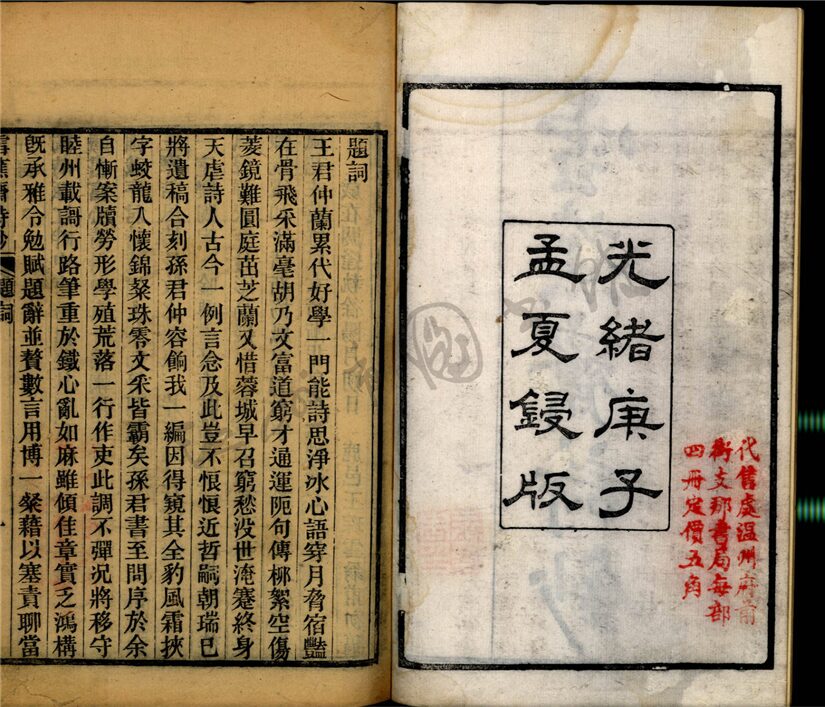 光緒庚子
孟夏鋟版
代售處溫州府前
街支那書局每部
四冊定價五角
題詞
王君仲蘭累代好學一門能詩思淨冰心語穿月脅宿豔
在骨飛采滿毫胡乃文富道窮才通運阨句傳柳絮空傷
菱鏡難圓庭茁芝蘭又惜蓉城早召窮愁沒世淹蹇終身
天虐詩人古今一例言念及此豈不悢悢近哲嗣朝瑞已
將遺稿合刻孫君仲容餉我一編因得窺其全豹風霜挾
字蛟龍入懷錦粲珠零文采皆霸矣孫君書至問序於余
自慚案牘勞形學殖荒落一行作吏此調不彈況將移守
睦州載謌行路筆重於鐵心亂如麻雖傾佳章實乏鴻構
旣承雅令勉賦題辭並贅數言用博一粲藉以塞責聊當
蕉
詩鈔
題詞
一